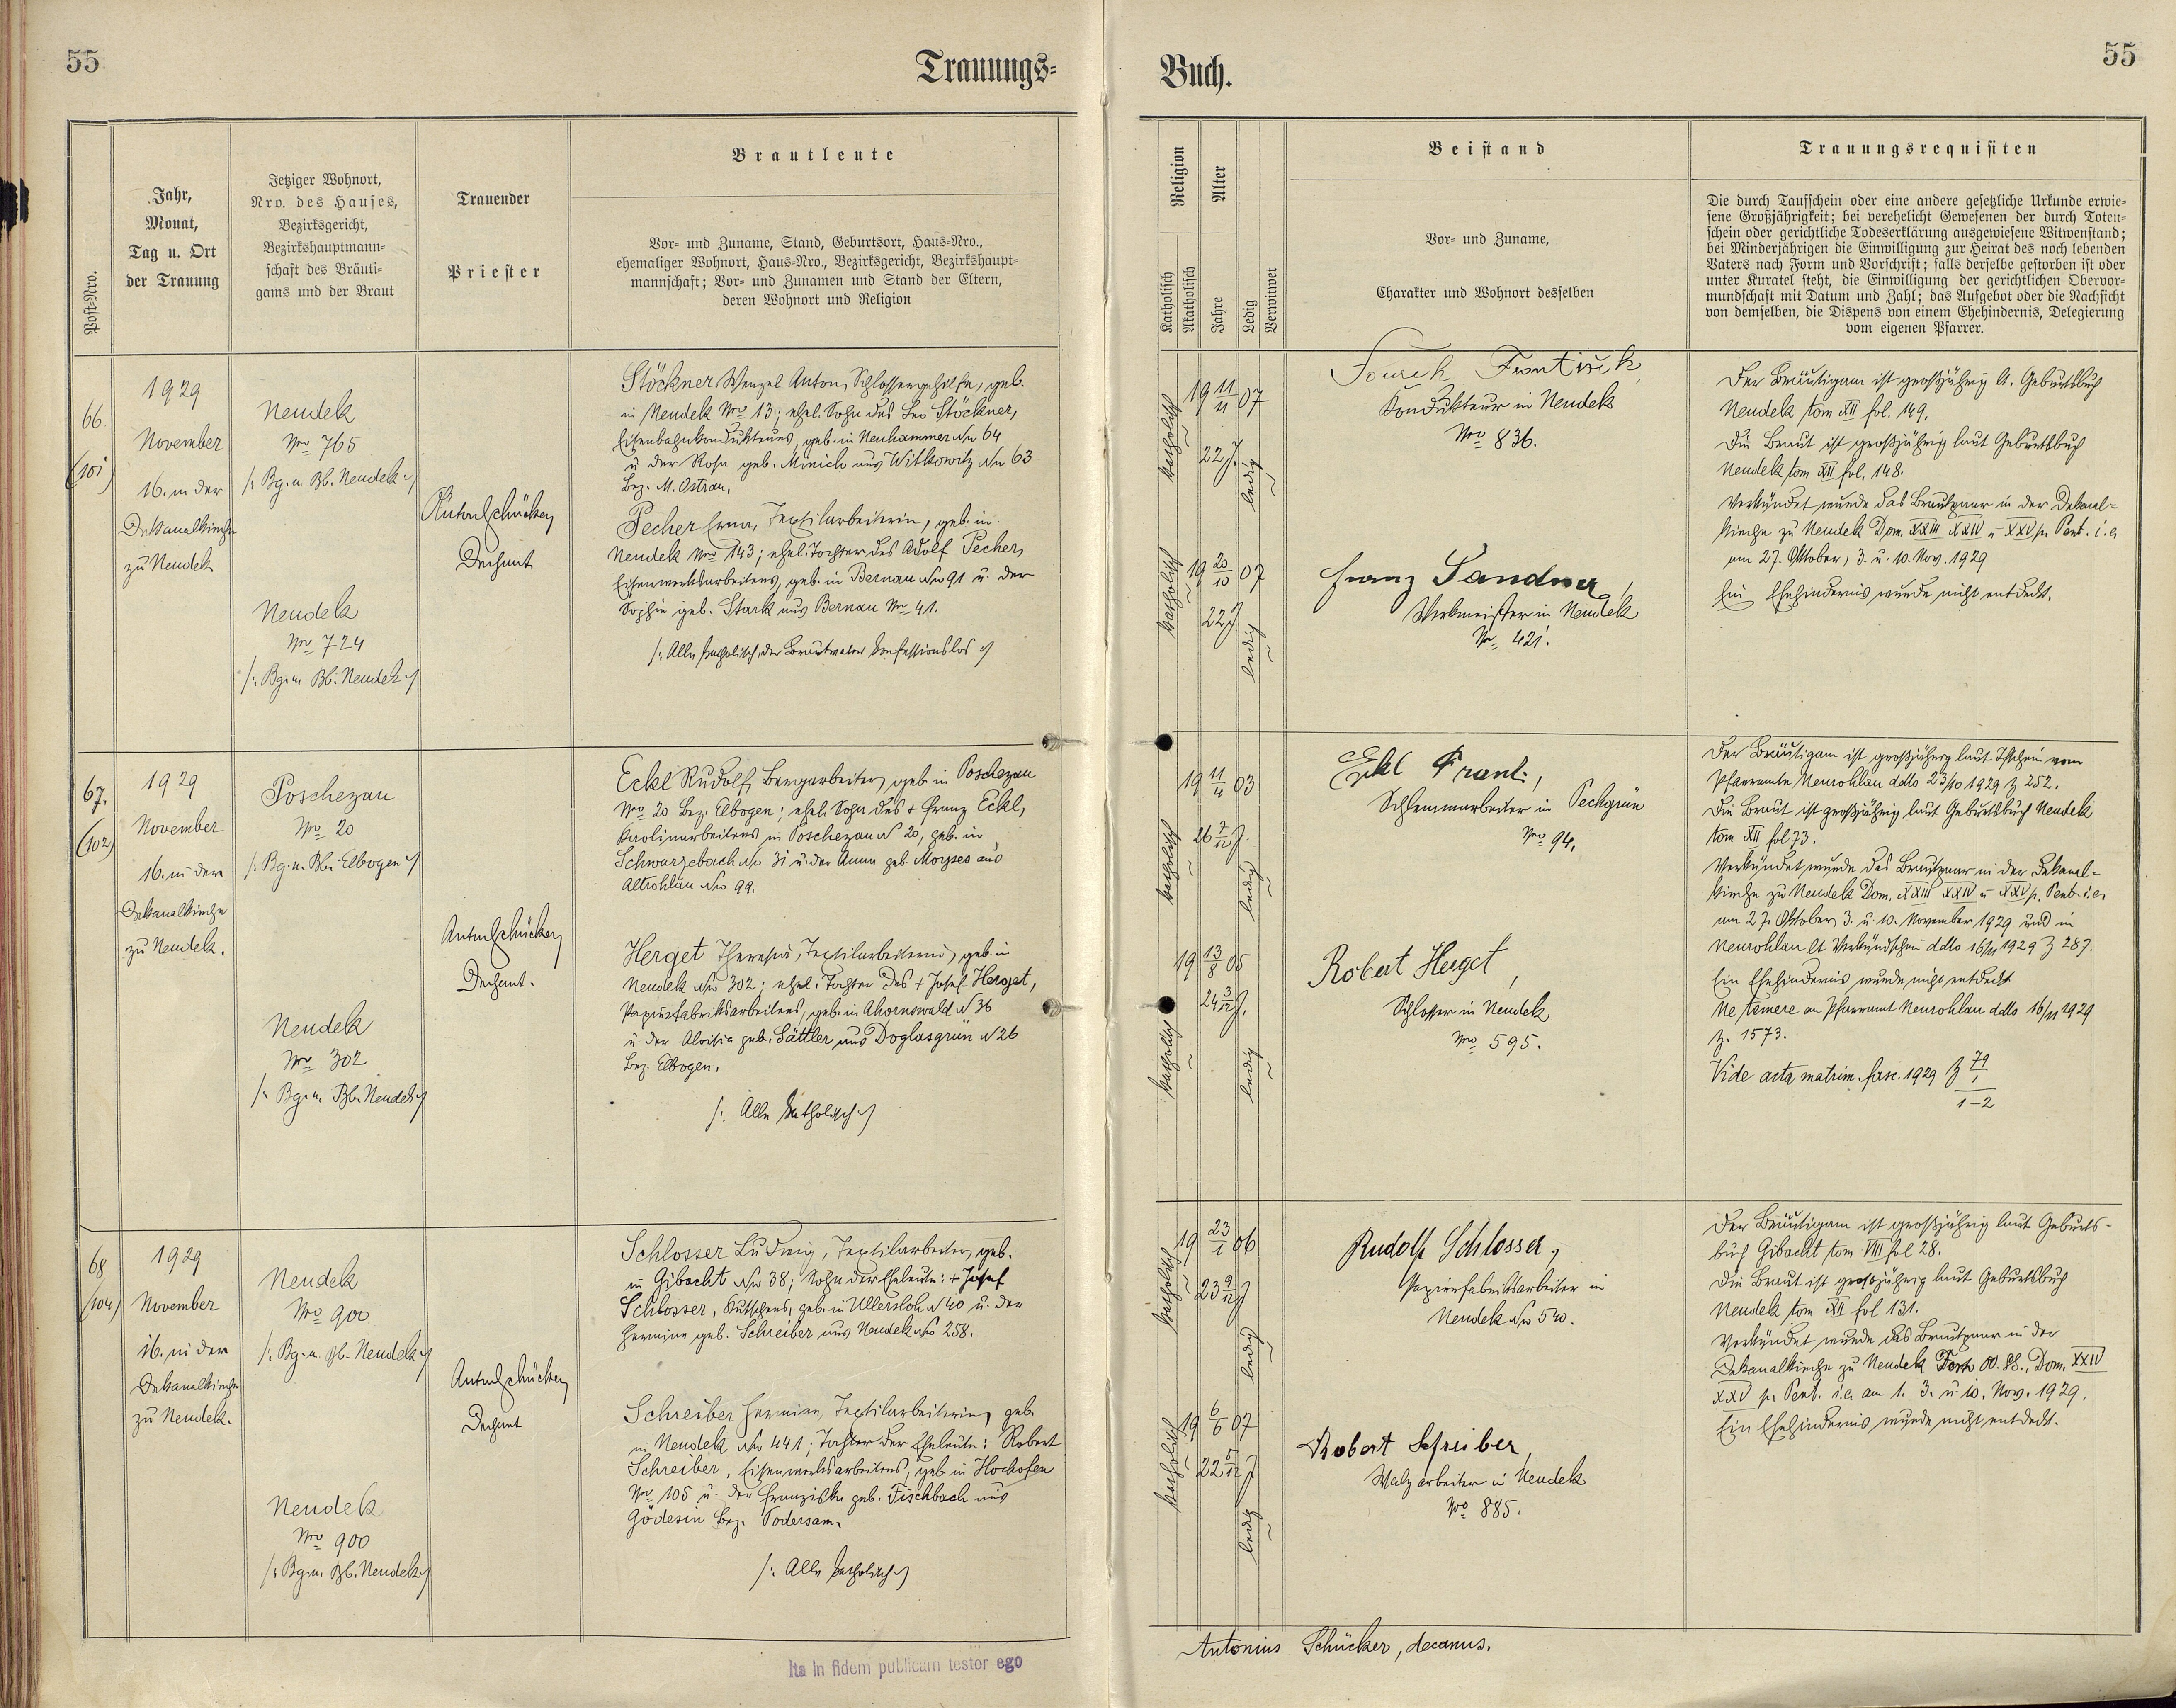 55
Trauungs=
Buch.
55
Post=Nro.
Jahr,
Monat,
Tag u. Ort
der Trauung
Jetziger Wohnort,
Nro. des Hauses,
Bezirksgericht,
Bezirkshauptmann=
schaft des Bräuti=
gams und der Braut
Trauender
Priester
Brautleute
Vor= und Zuname, Stand, Geburtsort, Haus=Nro.,
ehemaliger Wohnort, Haus=Nro., Bezirksgericht, Bezirkshaupt=
mannschaft; Vor= und Zunamen und Stand der Eltern,
deren Wohnort und Religion
Religion
Katholisch
Akatholisch
Alter
Jahre
Ledig
Verwitwet
Beistand
Vor= und Zuname,
Charakter und Wohnort desselben
Trauungsrequisiten
Die durch Taufschein oder eine andere gesetzliche Urkunde erwie=
sene Großjährigkeit; bei verehelicht Gewesenen der durch Toten=
schein oder gerichtliche Todeserklärung ausgewiesene Witwenstand;
bei Minderjährigen die Einwilligung zur Heirat des noch lebenden
Vaters nach Form und Vorschrift; falls derselbe gestorben ist oder
unter Kuratel steht, die Einwilligung der gerichtlichen Obervor=
mundschaft mit Datum und Zahl; das Aufgebot oder die Nachsicht
von demselben, die Dispens von einem Ehehindernis, Delegierung
vom eigenen Pfarrer.
66
(101)
1929
November
16. in der
Dekanalkirche
zu Neudek
Neudek
Nro 765
/: Bg. u. Bh. Neudek :/
Neudek
Nro 724
/: Bg. u. Bh. Neudek :/
Anton Schücker,
Dechant
Stöckner Wenzel Anton, Schlossergehilfe, geb.
in Neudek Nro 13; ehel. Sohn des Leo Stöckner,
Eisenbahnkondukteurs, geb. in Neuhammer Nro 64
u der Rosa geb. Minich aus Witkowitz Nro 63
Bez. M. Ostrau.
Pecher Erna, Textilarbeiterin, geb. in
Neudek Nro 143; ehel. Tochter des Adolf Pecher,
Eisenwerksarbeiters, geb. in Bernau Nro 91 u. der
Sophie geb. Stark aus Bernau Nro 41.
/: Alle katholisch, der Brautvater konfessionslos :/
katholisch
19 11/11 07
22 J.
ledig
katholisch
19 20/10 07
22 J
ledig
Kondukteur in Neudek
Nro 836.
Franz Sandner,
Werkmeister in Neudek
Nr. 421.
Der Bräutigam ist großjährig lt. Geburtsbuch
Neudek tom XII fol. 149.
Die Braut ist großjährig laut Geburtsbuch
Neudek tom XII fol. 148.
Verkündet wurde das Brautpaar in der Dekanal=
kirche zu Neudek Dom. XXIII XXIV u XXV p. Pent. i. e.
am 27. Oktober, 3. u. 10. Nov. 1929
Ein Ehehindernis wurde nicht entdeckt.
67.
(102)
1929
November
16. in der
Dekanalkirche
zu Neudek.
Poschezau
Nro 20
/: Bg. u. Bh. Elbogen :/
Neudek
Nro 302
/: Bg. u. Bh. Neudek :/
Anton Schücker,
Dechant.
Eckl Rudolf, Bergarbeiter, geb. in Poschezau
Nro 20 Bez. Elbogen; ehel. Sohn des + Franz Eckl,
Kaolinarbeiters in Poschezau N 20, geb. in
Schwarzebach Nro 31 u. der Anna geb. Moyses aus
Altrohlau Nro 99.
Herget Theresia, Textilarbeiterin, geb. in
Neudek Nro 302; ehel. Tochter des + Josef Herget,
Papierfabriksarbeiters, geb. in Ahornswald N 36
u. der Aloisia geb. Sättler aus Doglasgrün N 26
Bez. Elbogen.
/: Alle katholisch :/
katholisch
19 11/4 03
26 7/12 J.
ledig
katholisch
19 13/8 05
24 3/12 J.
ledig
Eckl Franz,
Schlemmarbeiter in Pechgrün
Nro 94.
Robert Herget,
Schlosser in Neudek
Nro 595.
Der Bräutigam ist großjährig laut Tfschein vom
Pfarramte Neurohlau ddto 23/10 1929 Z 252.
Die Braut ist großjährig laut Geburtsbuch Neudek
tom XII fol 73.
Verkündet wurde das Brautpaar in der Dekanal=
kirche zu Neudek Dom. XXIII XXIV u XXV p. Pent. i. e.
am 27. Oktober, 3. u. 10. November 1929 und in
Neurohlau lt Verkündschein ddto 16/11 1929 Z 287.
Ein Ehehindernis wurde nicht entdeckt
Ne temere an Pfarramt Neurohlau ddto 16/11 1929
Z. 1573.
Vide acta matrim. fasc. 1929 Z 79/1
1-2
68
(104)
1929
November
16. in der
Dekanalkirche
zu Neudek.
Neudek
Nro 900
/: Bg. u. Bh. Neudek :/
Neudek
Nro 900
/: Bg. u. Bh. Neudek :/
Anton Schücker,
Dechant
Schlosser Ludwig, Textilarbeiter, geb.
in Gibacht Nro 38; Sohn der Eheleute: + Josef
Schlosser, Kutschers, geb. in Ullersloh N 40 u. der
Hermine geb. Schreiber aus Neudek Nro 258.
Schreiber Hermine, Textilarbeiterin, geb.
in Neudek Nro 441; Tochter der Eheleute: Robert
Schreiber, Eisenwerksarbeiters, geb. in Hochofen
Nro 105 u. der Franziska geb. Fischbach aus
Gödesin Bez. Podersam.
/: Alle katholisch :/
katholisch
19 23/1 06
23 9/12 J
ledig
katholisch
19 6/6 07
22 5/12 J
ledig
Rudolf Schlosser,
Papierfabriksarbeiter in
Neudek Nro 540.
Robert Schreiber,
Walzarbeiter in Neudek
Nro 885.
Der Bräutigam ist großjährig laut Geburts=
buch Gibacht tom VIII fol 28.
Die Braut ist großjährig laut Geburtsbuch
Neudek tom XII fol 131.
Verkündet wurde das Brautpaar in der
Dekanalkirche zu Neudek Festo OO. SS., Dom. XXIV
XXV p. Pent. i. e. am 1. 3. u. 10. Nov. 1929.
Ein Ehehindernis wurde nicht entdeckt.
Ita in fidem publicam testor ego
Antonius Schücker, decanus.